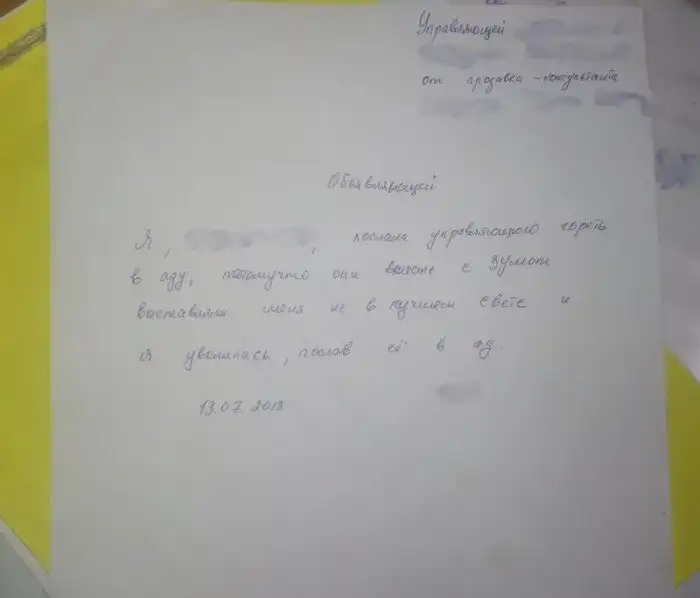 Управляющей
от продавка-консультанта
Объявляющей
Я, , послала управляющего гореть
в аду, потомучто они вместе с Зумом
выставляли меня не в лучшем свете и
я уволилась, послав её в ад.
13.07.2018